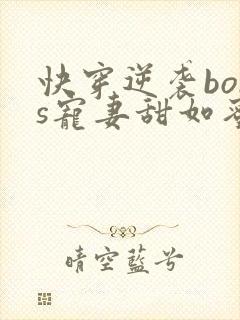 快穿逆袭bos
s寵妻甜如蜜
晴空藍兮